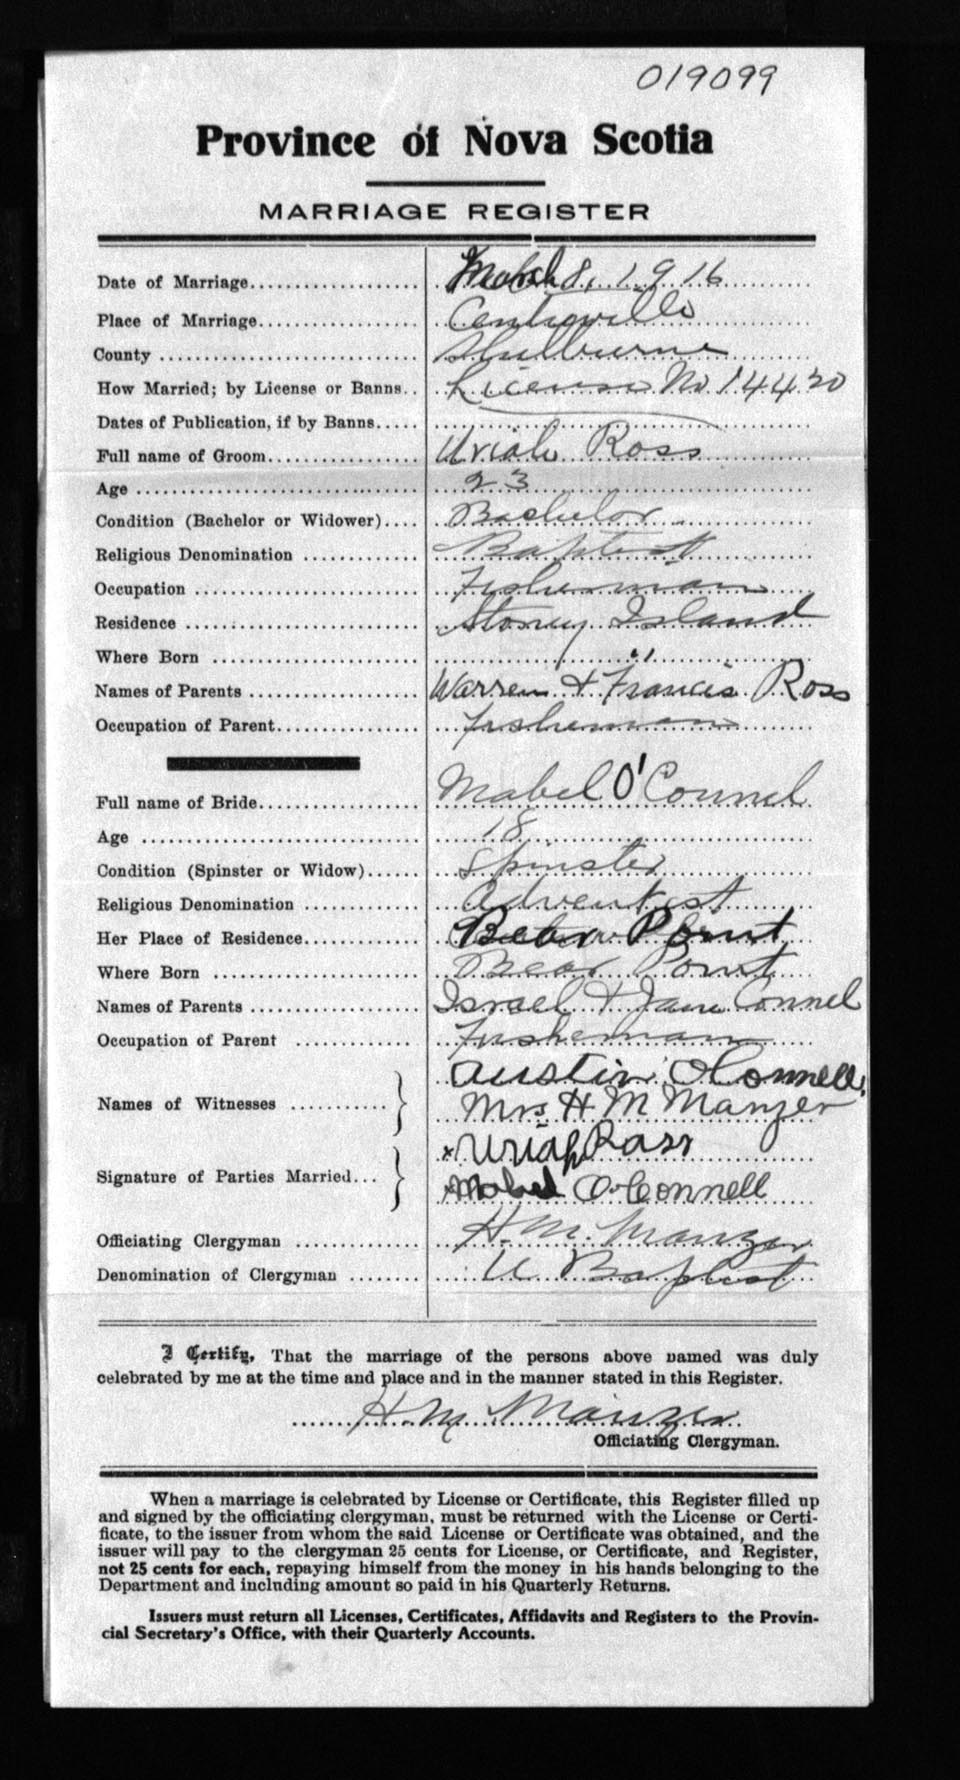 019099
Province of Nova Scotia
MARRIAGE REGISTER
Date of Marriage.................. March 8, 1916
Place of Marriage................. Centreville
County ........................... Shelburne
How Married; by License or Banns.. License No 14420
Dates of Publication, if by Banns.....
Full name of Groom................ Uriah Ross
Age .............................. 23
Condition (Bachelor or Widower).... Bachelor
Religious Denomination ............ Baptist
Occupation ....................... Fisherman
Residence ........................ Stoney Island
Where Born ....................... "
Names of Parents ................. Warren & Francis Ross
Occupation of Parent.............. Fisherman
Full name of Bride................ Mabel O'Connel
Age .............................. 18
Condition (Spinster or Widow)...... Spinster
Religious Denomination ............ Adventist
Her Place of Residence............ Bear Point
Where Born ....................... Bear Point
Names of Parents ................. Israel & Jane Connel
Occupation of Parent ............ Fisherman
Austin OConnell
Names of Witnesses ........... } Mrs H M Manzer
x Uriah Ross
Signature of Parties Married... } x Mabel O.Connell
Officiating Clergyman ............. H. M. Manzer
Denomination of Clergyman ........ U Baptist
I Certify, That the marriage of the persons above named was duly
celebrated by me at the time and place and in the manner stated in this Register.
H. M. Manzer
Officiating Clergyman.
When a marriage is celebrated by License or Certificate, this Register filled up
and signed by the officiating clergyman, must be returned with the License or Certi-
ficate, to the issuer from whom the said License or Certificate was obtained, and the
issuer will pay to the clergyman 25 cents for License, or Certificate, and Register,
not 25 cents for each, repaying himself from the money in his hands belonging to the
Department and including amount so paid in his Quarterly Returns.
Issuers must return all Licenses, Certificates, Affidavits and Registers to the Provin-
cial Secretary's Office, with their Quarterly Accounts.